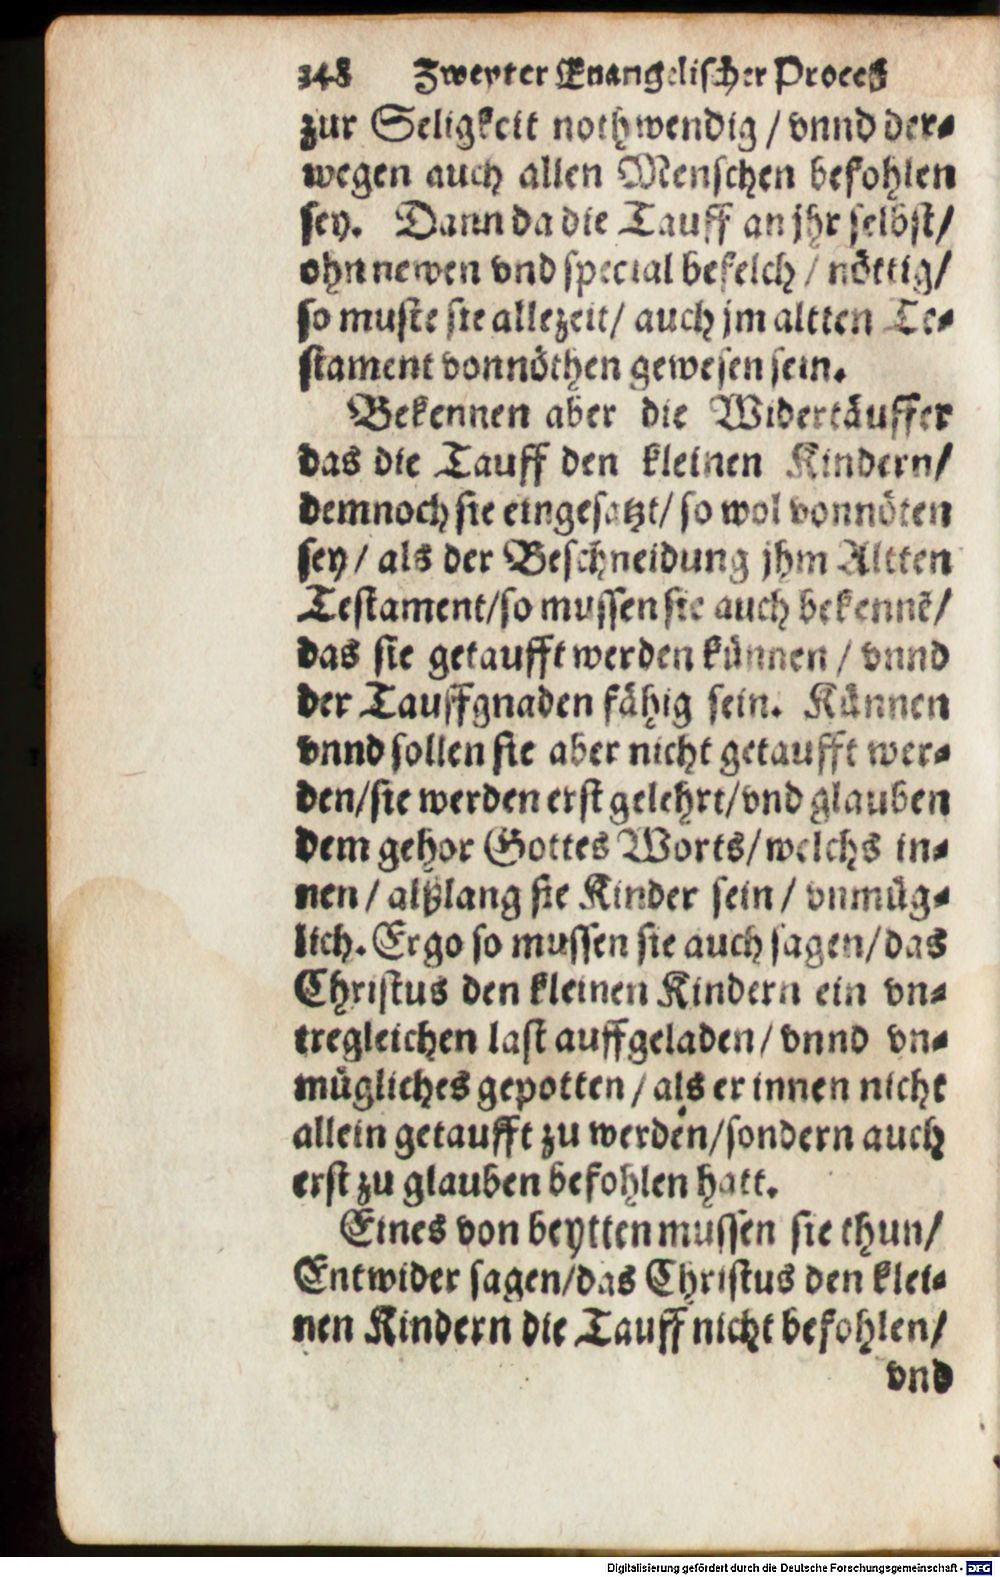 348 Zweyter Euangelischer Proceß
zur Seligkeit nothwendig / vnnd der-
wegen auch allen Menschen befohlen
sey. Dann da die Tauff an jhr selbst/
ohn newen vnd special befelch / nöttig/
so muste sie allezeit/ auch jm altten Te-
stament vonnöthen gewesen sein.
Bekennen aber die Widertäuffer
das die Tauff den kleinen Kindern/
demnoch sie eingesatzt/ so wol vonnöten
sey / als der Beschneidung jhm Altten
Testament/so mussen sie auch bekennẽ/
das sie getaufft werden künnen / vnnd
der Tauffgnaden fähig sein. Künnen
vnnd sollen sie aber nicht getaufft wer-
den/sie werden erst gelehrt/vnd glauben
dem gehor Gottes Worts/welchs in-
nen / alßlang sie Kinder sein / vnmüg-
lich. Ergo so mussen sie auch sagen/das
Christus den kleinen Kindern ein vn-
tregleichen last auffgeladen/ vnnd vn-
mügliches gepotten / als er innen nicht
allein getaufft zu werden/sondern auch
erst zu glauben befohlen hatt.
Eines von beytten mussen sie thun/
Entwider sagen/das Christus den klei-
nen Kindern die Tauff nicht befohlen/
vnd
Digitalisierung gefördert durch die Deutsche Forschungsgemeinschaft - DFG